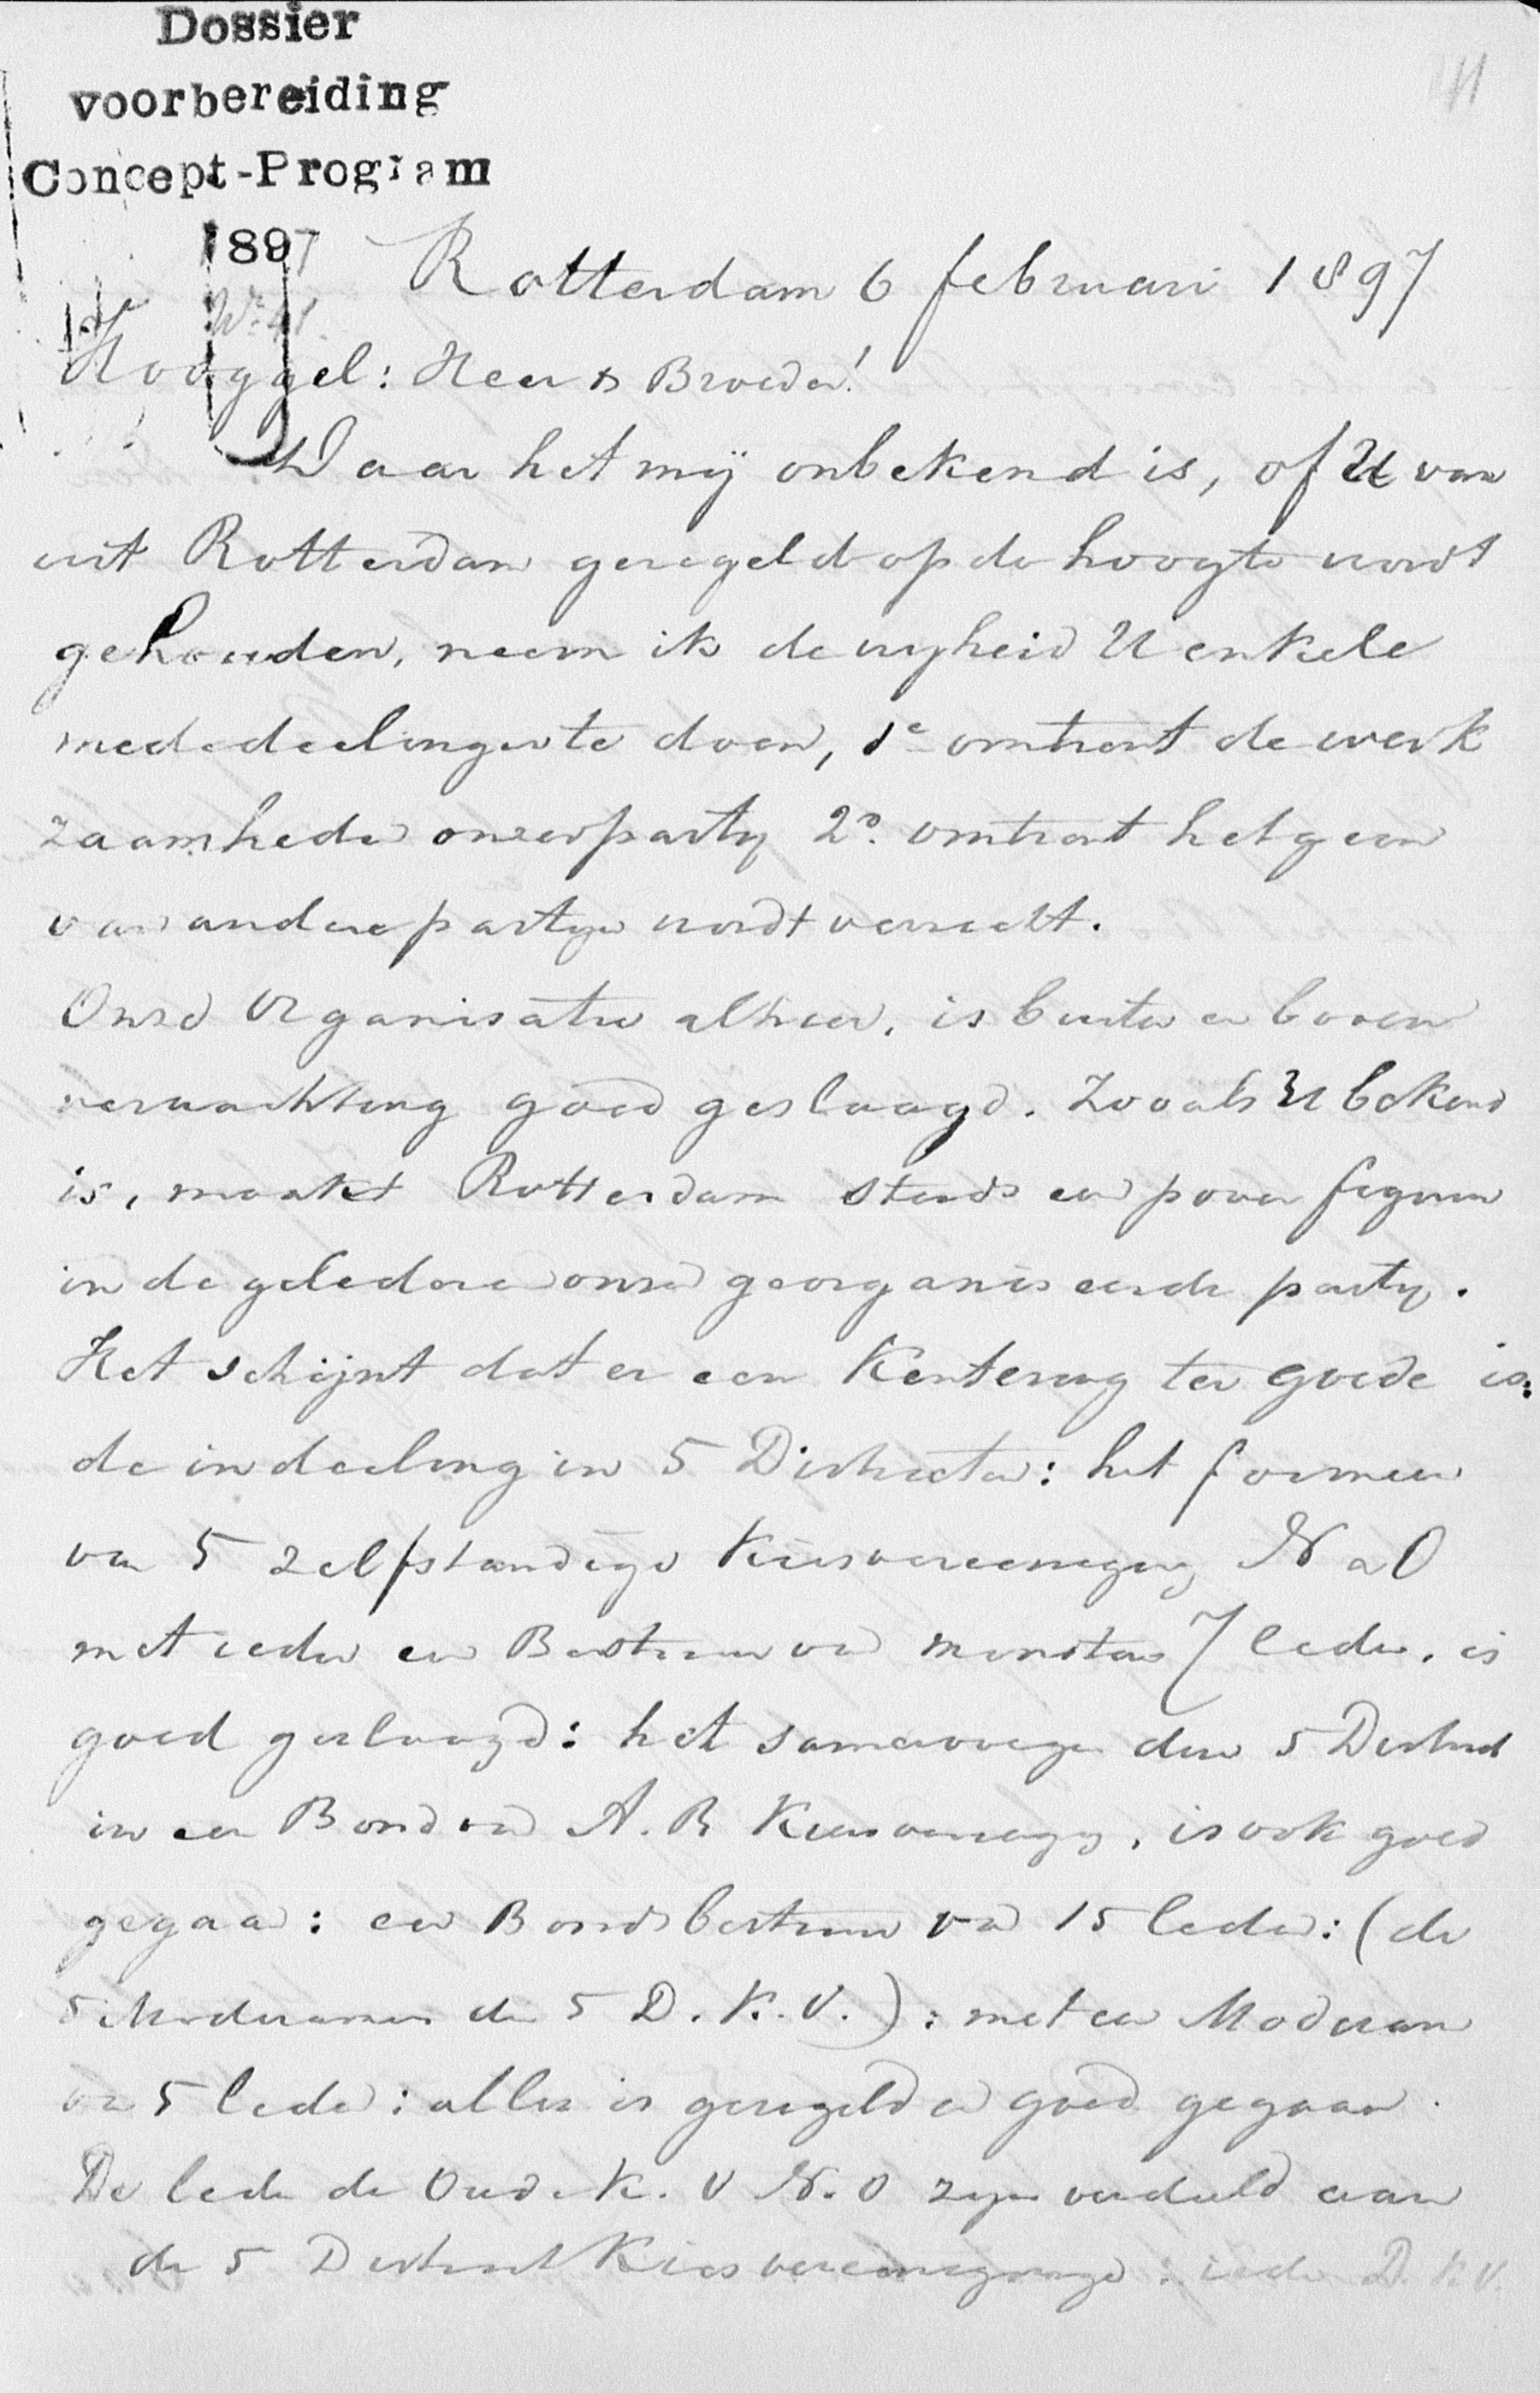 Dossier
voorbereiding
Concept-Program
1897
No 41.
Rotterdam 6 februari 1897
Hooggel: Heer & Broeder!
Daar het mij onbekend is, of U van
uit Rotterdam geregeld op de hoogte wordt
gehouden, neem ik de vryheid U enkele
mededeelingen te doen, 1e omtrent de werk
zaamheden onzer party 2o. omtrent hetgeen
van andere partyen wordt verricht.
Onze Organisatie alhier, is buiten en boven
verwachting goed geslaagd. Zooals U bekend
is, maakt Rotterdam steeds een pover figuur
in de gelederen onzer georganiseerde party.
Het schijnt dat er een Kentering ten goede is:
de indeeling in 5 Districten: het formeeren
van 5 zelfstandige Kiesvereeniging N a O
met ieder een Bestuur van minstens 7 leden, is
goed geslaagd: het samenvoegen dier 5 District
in een Bond van A. R Kiesvereenig, is ook goed
gegaan: een Bondsbestuur van 15 leden: (de
5 Moderamen der 5 D. K. V.): met een Moderam
van 5 leden: alles is geregeld en goed gegaan.
De leden der Oude K. V N. O zyn verdeeld aan
de 5 District Kiesvereenigingen: ieder D. K. V.